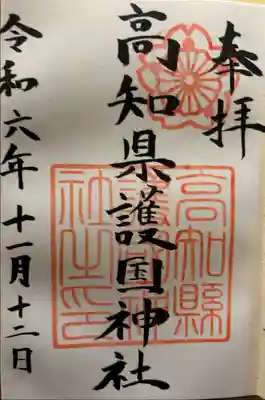 奉拝
高知県護国神社
令和六年十一月十二日
高知縣
護國神
社之印